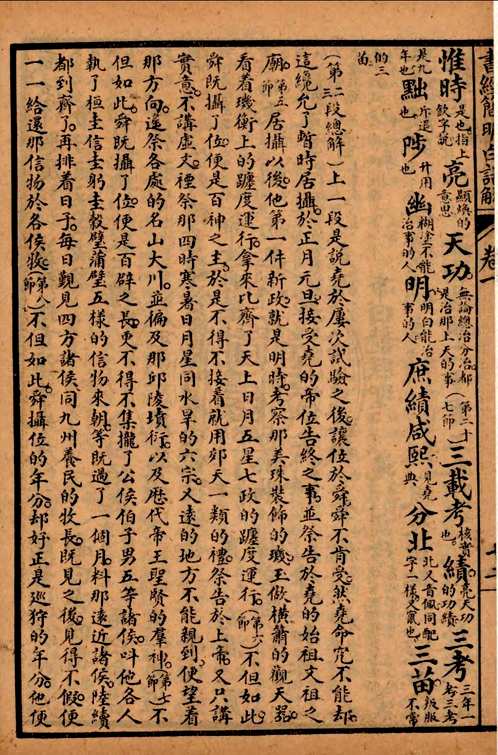 書經簡明白話解 卷一
惟時是也指上飲字說亮顯煥的意思天功無論總治分治都是治那上天的事(第二十七節)三載考核實也績亮天功的功績三考三年一考三考
是九年也黜斥退也陟升用也幽糊塗不能治事的人明明白能治事的人庶績咸熙見堯典分北北又音佩同配字一樣又竄也三苗叛服不常
的三苗
(第二段總解)上一段是說堯於屢次試驗之後讓位於舜舜不肯受然堯命究不能却
這纔允了暫時居攝於正月元旦接受堯的帝位告終之事並祭告於堯的始祖文祖之
廟(第五節)居攝以後他第一件新政就是明時考察那美珠裝飾的璣玉做橫簫的觀天器
看着璣衡上的躔度運行拿來比齊了天上日月五星七政的躔度運行(第六節)不但如此
舜既攝了位便是百神之主於是不得不接着就用郊天一類的禮祭告於上帝又只講
實意不講虛文禋祭那四時寒暑日月星同水旱的六宗又遠的地方不能親到便望着
那方向遙祭各處的名山大川並徧及那邱陵墳衍以及歷代帝王聖賢的羣神(第七節)不
但如此舜既攝了位便是百辟之長更不得不集攏了公侯伯子男五等諸侯呌他各人
執了桓圭信圭躬圭穀璧蒲璧五樣的信物來朝等既過了一個月料那遠近諸侯陸續
都到齊了再排着日子每日覲見四方諸侯同九州養民的牧長既見之後見得不假便
一一給還那信物於各侯牧(第八節)不但如此舜攝位的年分却好正是巡狩的年分他便